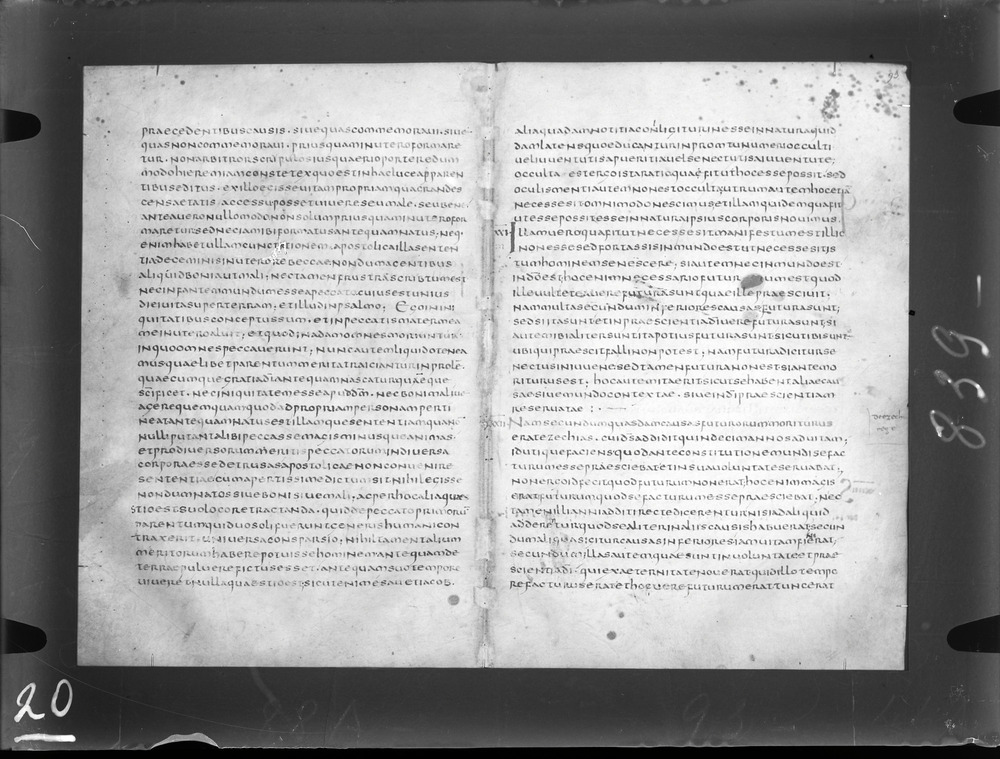 praecedentibuscausis· siuequascommemoraui· siue
quasnoncommemoraui· priusquaminuteroformare
tur· nonarbitrorscripulosiusquaerioporteredum
modohieremiamconstetexquoestinhaclucéapparen
tibuseditus· exilloecisseuitampropriamquagrandes
censaetatis accessupossetuiuereseumale· seubene·
anteaueronullomodononsolumpriusquaminuterofor
maretursedneciamibiformatusantequamnatus; neq·
enimhabetullamcunctationemapostolicaillasenten
tiadegeminisinuterorebeccaenondumagentibus
aliquidboniautmali; nectamenfrustrascribtumest
necinfantemmundumesseapeccatacuiusestunius
dieiuitasuperterram; etilludinpsalmo; Egoinini
quitatibusconceptussum· etinpeccatismatermea
meinuteroaluit; etquodinadamomnesmoriuntur·
inquoomnespeccauerunt; nuncautemliquidotenea
musquaelibetparentummeritatraicianturinprolē·
quaecumquegratiadīantequamnascaturquāque
scīficet· neciniquitatemesseapuddm̄· necbonimaliue
agerequemquamquodadpropriampersonamperti
neatantequamnatusestillamquesententiamquanō
nulliputantalibipeccassemagisminusqueanimas·
etprodiuersorummeritispeccatorumindiuersa
corporaessedetrusasapostolicaenonconuenire
sententiaecumapertissimedictumsitnihilegisse
nondumnatossiuebonisiuemali; acperhocaliaque
stioestsuolocoretractanda· quiddepeccatoprimorū
parentumquiduosolifueruntgenerishumanicon
traxerit· uniuersaconsparsio; nihiltamentalium
meritorumhaberepotuissehominemantequamde
terraepulverefictusesset· antequamsuotempore
uiueretnullaquaestioest; sicutenimesauetiacob·
93
aliaquadamnotitiacolligiturinesseinnaturaquid
damlatensquoeducanturinpromtunumeriocculti
ueliuuentutisapueritiauelsenectutisaiuuentute;
occulta estergoistaratioquaefituthocessepossit· sed
oculismentiautemnonestoccultautrumautemhocetiā
necessesitomnimodonescimusetillamquidemquafit
utesseposissesseinnaturaipsiuscorporisnouimus·
xvi Illamueroquafitutnecessesitmanifestumestillic
nonessesedfortassisinmundoestutnecessesitis
tumhominemsenescere; siautemnecinmundoest
indōesthocenimnecessariofuturumestquod
illeuultetauerefuturasuntquaeillepraesciuit·
nammultasecunduminferiorescausasfuturasunt;
sedsiitasuntetinpraescientiadīuerefuturasunt; si
autemibialitersuntitapotiusfuturasuntsicutibisunt·
ubiquipraescitfallinonpotest; namfuturadiciturse
nectusiniuuenesedtamenfuturanonestsiantemo
riturusest; hocautemitaeritsicutsehabentaliaecau
saesiuemundocontextae· siueindīpraescientiam
reseruatae
xvii Namsecundumquasdamcausasfuturorummoriturus
eratezechias· cuids̄addiditquindecimannosaduitam;
idutiquefaciensquodanteconstitutionemmundisefac
turumessepraesciebatetinsuauoluntateseruabat;
nonergoidfecitquodfuturumnonerathocenimmagis
eratfuturumquodsefacturumessepraesciebat; nec
tamenilliannīadditirectedicerenturnisiadaliquid
adderéturquodsealiterinaliiscausishabuerat; secun
dumaliquasigiturcausasinferioresiamuitamfinierat;
secundumillasautemquaesuntinuoluntateetprae
scientiadī· quiexaeternitatenoueratquidillotempo
refacturuseratethocuerefuturumerattuncerat
839-
20